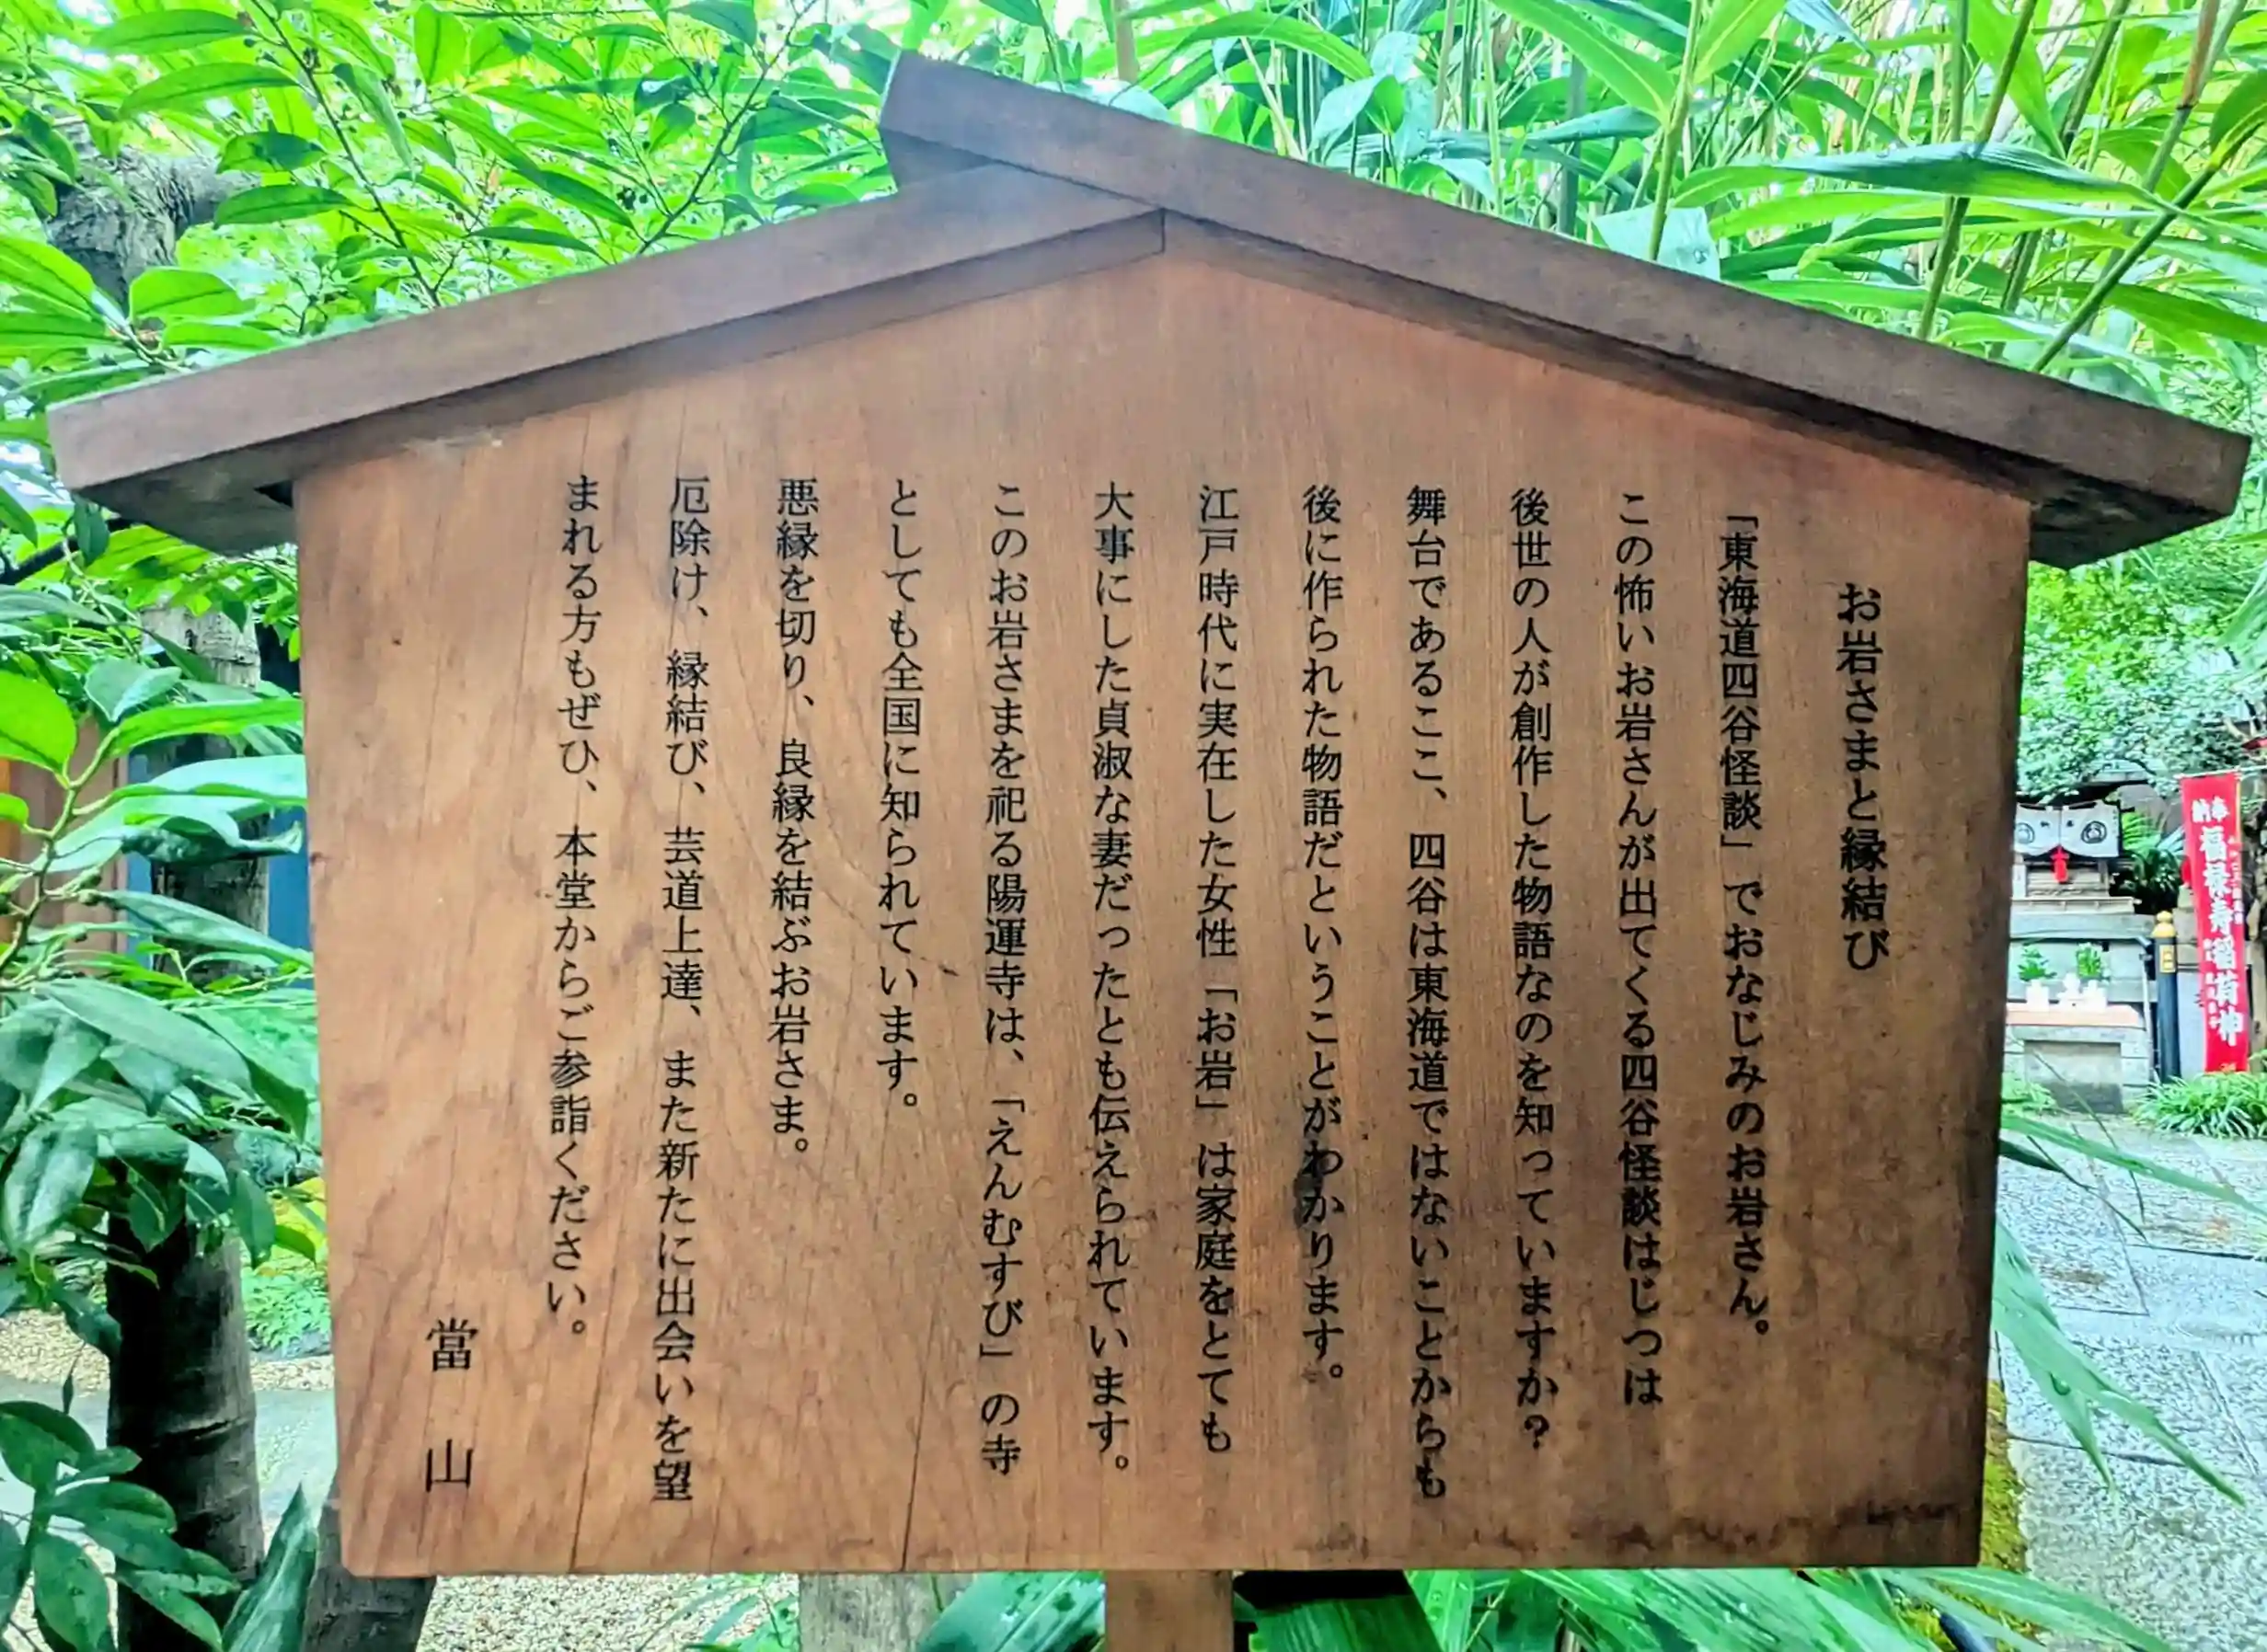 お岩さまと縁結び
「東海道四谷怪談」でおなじみのお岩さん。
この怖いお岩さんが出てくる四谷怪談はじつは
後世の人が創作した物語なのを知っていますか？
舞台であるここ、四谷は東海道ではないことからも
後に作られた物語だということがわかります。
江戸時代に実在した女性「お岩」は家庭をとても
大事にした貞淑な妻だったとも伝えられています。
このお岩さまを祀る陽運寺は、「えんむすび」の寺
としても全国に知られています。
悪縁を切り、良縁を結ぶお岩さま。
厄除け、縁結び、芸道上達、また新たに出会いを望
まれる方もぜひ、本堂からご参詣ください。
當山
奉納
福禄寿稲荷神